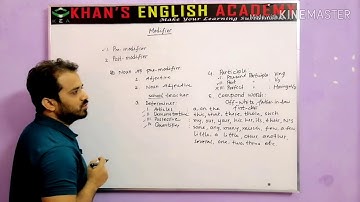 KHAN'S ENGLISH ACADEMY
Make Your Learning
KINEMASTER
Modifier
1. Pre-modifier
2. Post-modifier
Noun pre-modifier
1. Adjective
2. Noun Adjective
school teacher
3. Determiner
i. Articles
ii. Demonstrative
iii. Possessive
iv. Quantifier
4. Participle
Present Participle Ving
Past
Perfect
5. Compound Words
Off-white, father in law
a, an, the
this, that, these, those, such
my, our, your, his, her, its, their
some, any, many, much, few, a few
little, a little, other, another
several, one, two, three etc.